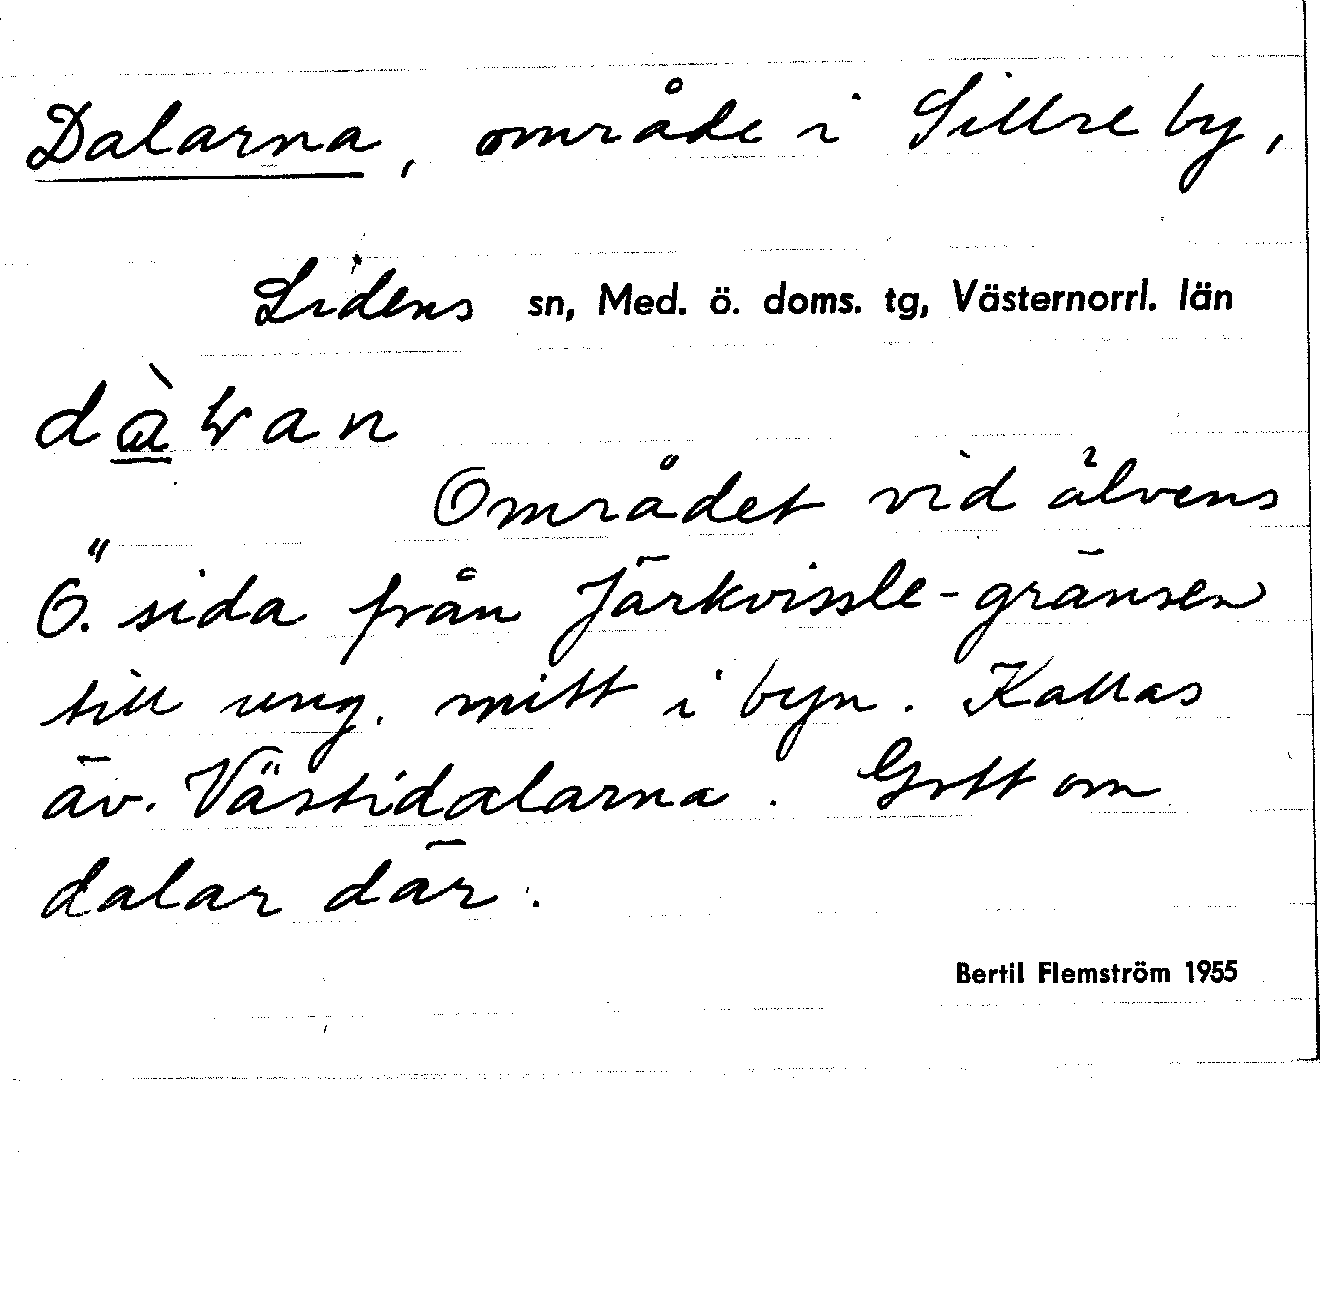 Dalarna, område i Sillre by,
Lidens sn, Med. ö. doms. tg, Västernorrl. län
Området vid älvens
Ö. sida från Järkvissle-gränsen
till ung. mitt i byn. Kallas
äv. Västidalarna. Gott om
dalar där.
Bertil Flemström 1955